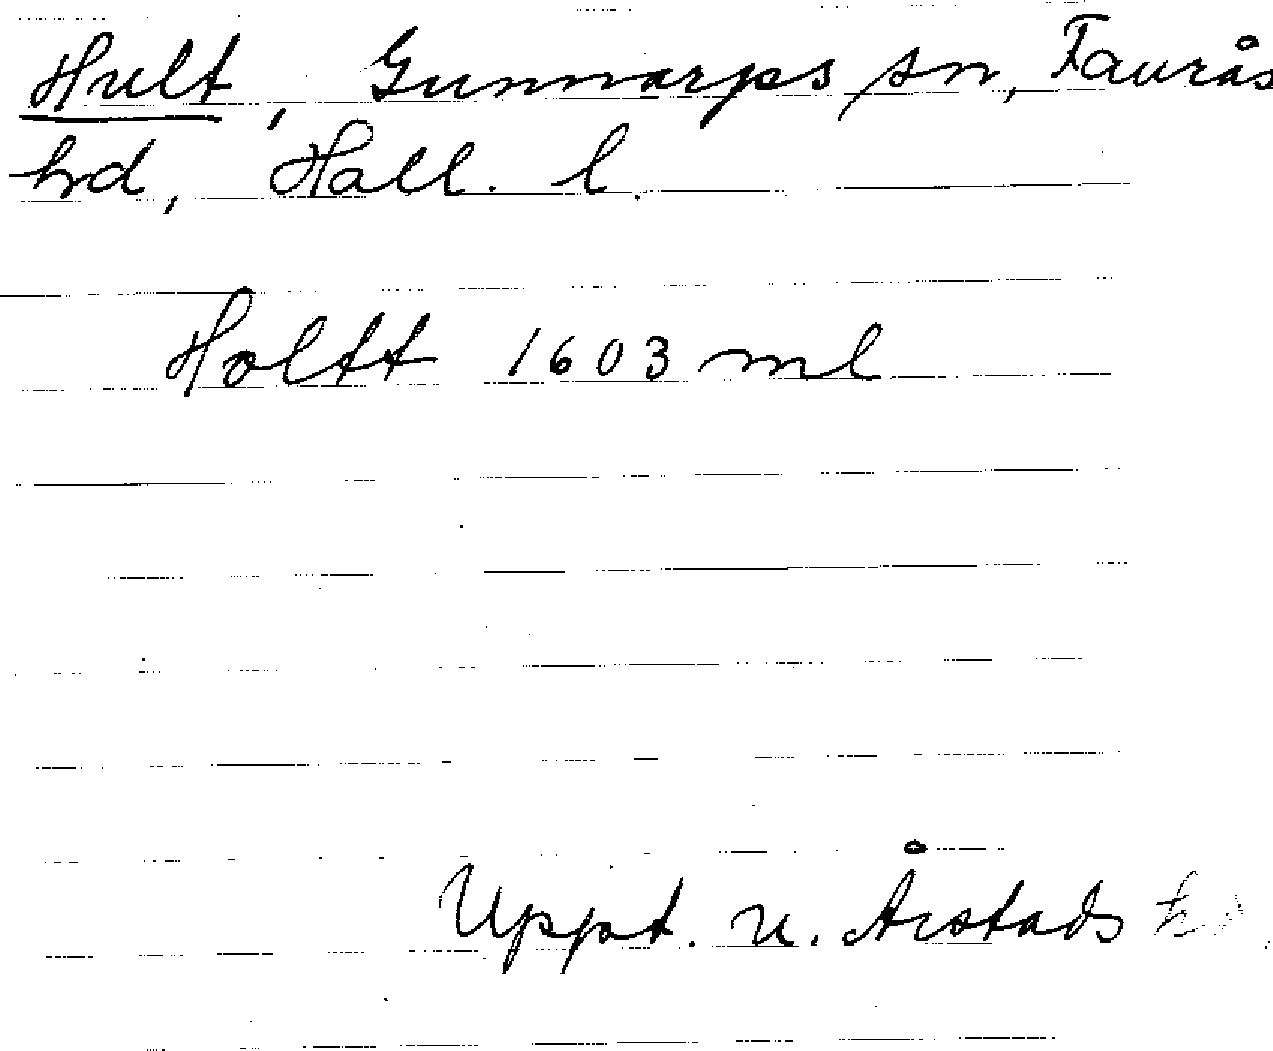 Hult, Gunnarps sn, Faurås
hrd, Hall. l.
Holtt 1603 ml
Uppt. u. Årstads